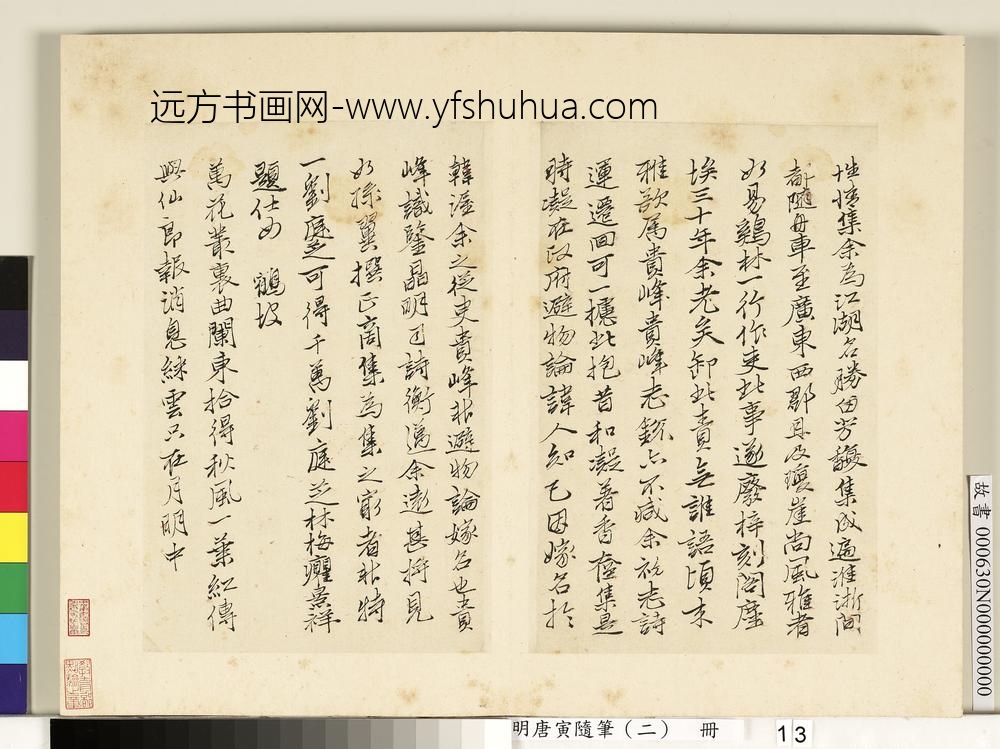 远方书画网-www.yfshuhua.com
性情集余為江湖名勝田芳馥集成遍淮浙間
都隨舟車至廣東西郡縣及瓊崖尚風雅者
如易鷄林一行作吏此事遂廢梓刻閣塵
埃三十年余老矣卸此責無誰語頃末
雅欲屬貴峰貴峰志銳亦不減余於老詩
運遷回可一攄此抱昔和凝著香奩集是
時凝在政府避物論諱人知己因嫁名於
韓渥余之從吏貴峰非避物論嫁名也貴
峰識鑒晶明司詩衡過余遠甚將見
如孫翼撰正商集為集之窮者非特
一劉庭芝可得千萬劉庭芝林梅癯景祥
題仕女 鶴坡
萬花叢裏曲闌東拾得秋風一葉紅傳
與仙郎報消息綠雲只在月明中
故書 000630N000000000
明唐寅隨筆(二) 冊 13